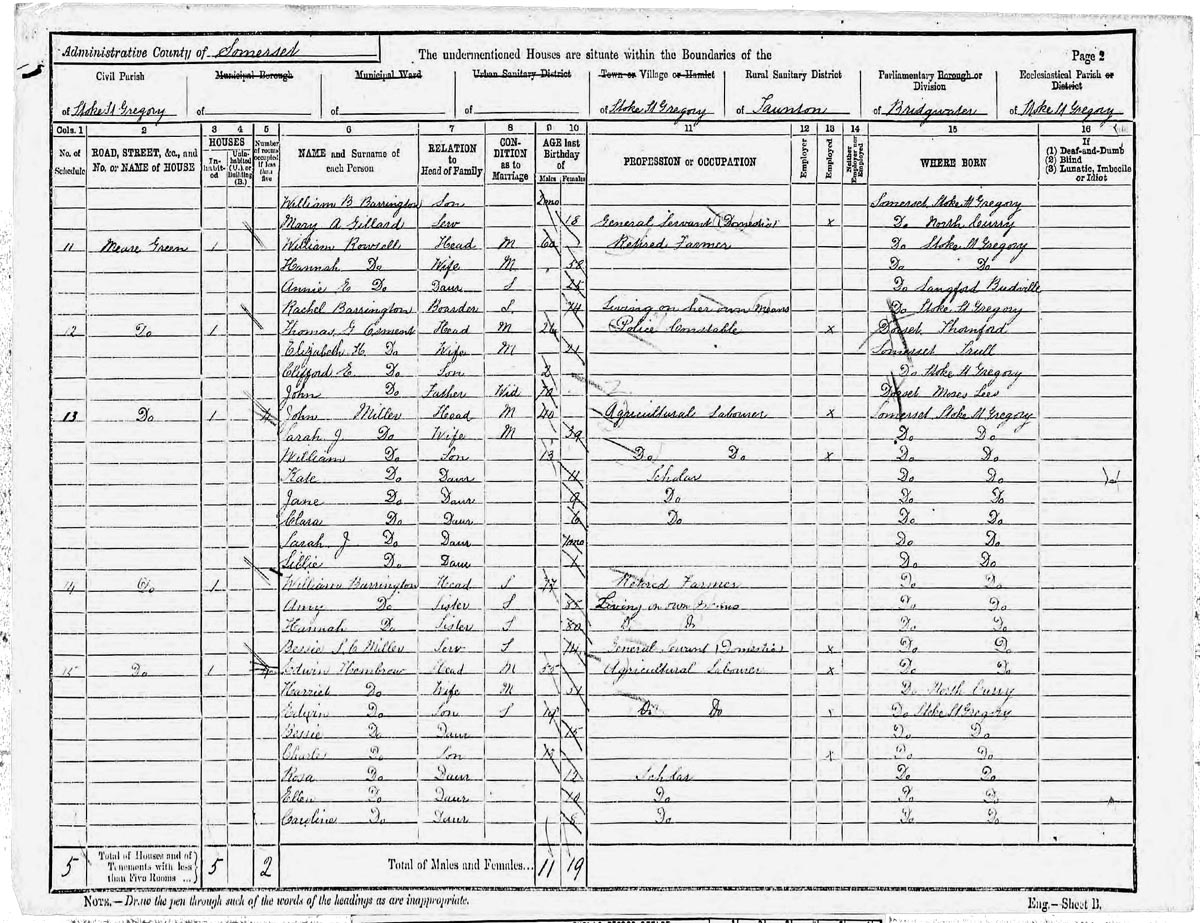 Administrative County of Somerset
The undermentioned Houses are situate within the Boundaries of the
Page 2
Civil Parish Municipal Borough Municipal Ward Urban Sanitary District Town or Village or Hamlet Rural Sanitary District Parliamentary Borough or Division Ecclesiastical Parish or District
of Stoke St Gregory of of of of Stoke St Gregory of Taunton of Bridgwater of Stoke St Gregory
Cols. 1 2 3 4 5 6 7 8 9 10 11 12 13 14 15 16
No. of Schedule ROAD, STREET, &c., and No. or NAME of HOUSE HOUSES Inhabited Uninhabited (U.) or Building (B.) Number of rooms occupied if less than five NAME and Surname of each Person RELATION to Head of Family CONDITION as to Marriage AGE last Birthday of Males Females PROFESSION or OCCUPATION Employer Employed Neither Employer nor Employed WHERE BORN If (1) Deaf-and-Dumb (2) Blind (3) Lunatic, Imbecile or Idiot
William B Barrington Son 2mo Somerset Stoke St Gregory
Mary A Gillard Serv 18 General Servant (Domestic) x Do North Curry
11 Meare Green 1 William Rowsell Head M 60 Retired Farmer Do Stoke St Gregory
Hannah Do Wife M 58 Do Do
Annie E Do Daur S 25 Do Langford Budville
Rachel Barrington Boarder S 74 Living on her own Means Do Stoke St Gregory
12 Do 1 Thomas G Osment Head M 26 Police Constable x Dorset Thornford
Elizabeth H Do Wife M 21 Somerset Trull
Clifford E Do Son Do Stoke St Gregory
John Do Father Wid 70 Dorset Moses Lees
13 Do 1 4 John Miller Head M 40 Agricultural Labourer x Somerset Stoke St Gregory
Sarah J Do Wife M 39 Do Do
William Do Son 13 Do Do x Do Do
Kate Do Daur 11 Scholar Do Do
Jane Do Daur 9 Do Do Do
Clara Do Daur 6 Do Do Do
Sarah J Do Daur Do Do
Lillie Do Daur Do Do
14 Do 1 William Barrington Head S 77 Retired Farmer Do Do
Amy Do Sister S 85 Living on own Means Do Do
Hannah Do Sister S 80 Do Do Do Do
Bessie S C Miller Serv S 14 General Servant (Domestic) x Do Do
15 Do 1 4 Edwin Hembrow Head M 55 Agricultural Labourer x Do Do
Harriet Do Wife M 51 Do North Curry
Edwin Do Son S 19 Do Do x Do Stoke St Gregory
Bessie Do Daur 15 Do Do
Charles Do Son 13 x Do Do
Rosa Do Daur 12 Scholar Do Do
Ellen Do Daur 10 Do Do Do
Caroline Do Daur 8 Do Do Do
5 Total of Houses and of Tenements with less than Five Rooms ... 5 2 Total of Males and Females... 11 19
NOTE.—Draw the pen through such of the words of the headings as are inappropriate.
Eng.—Sheet B.